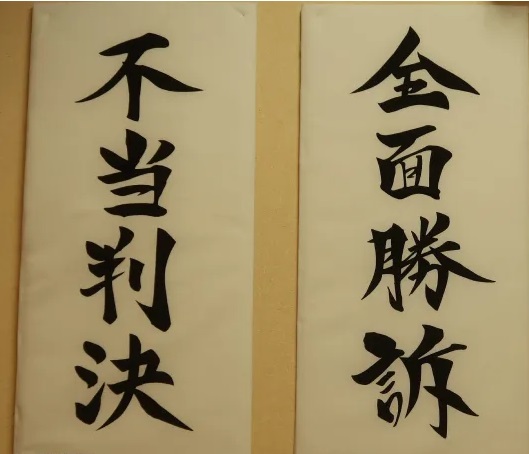 全面勝訴
不当判決